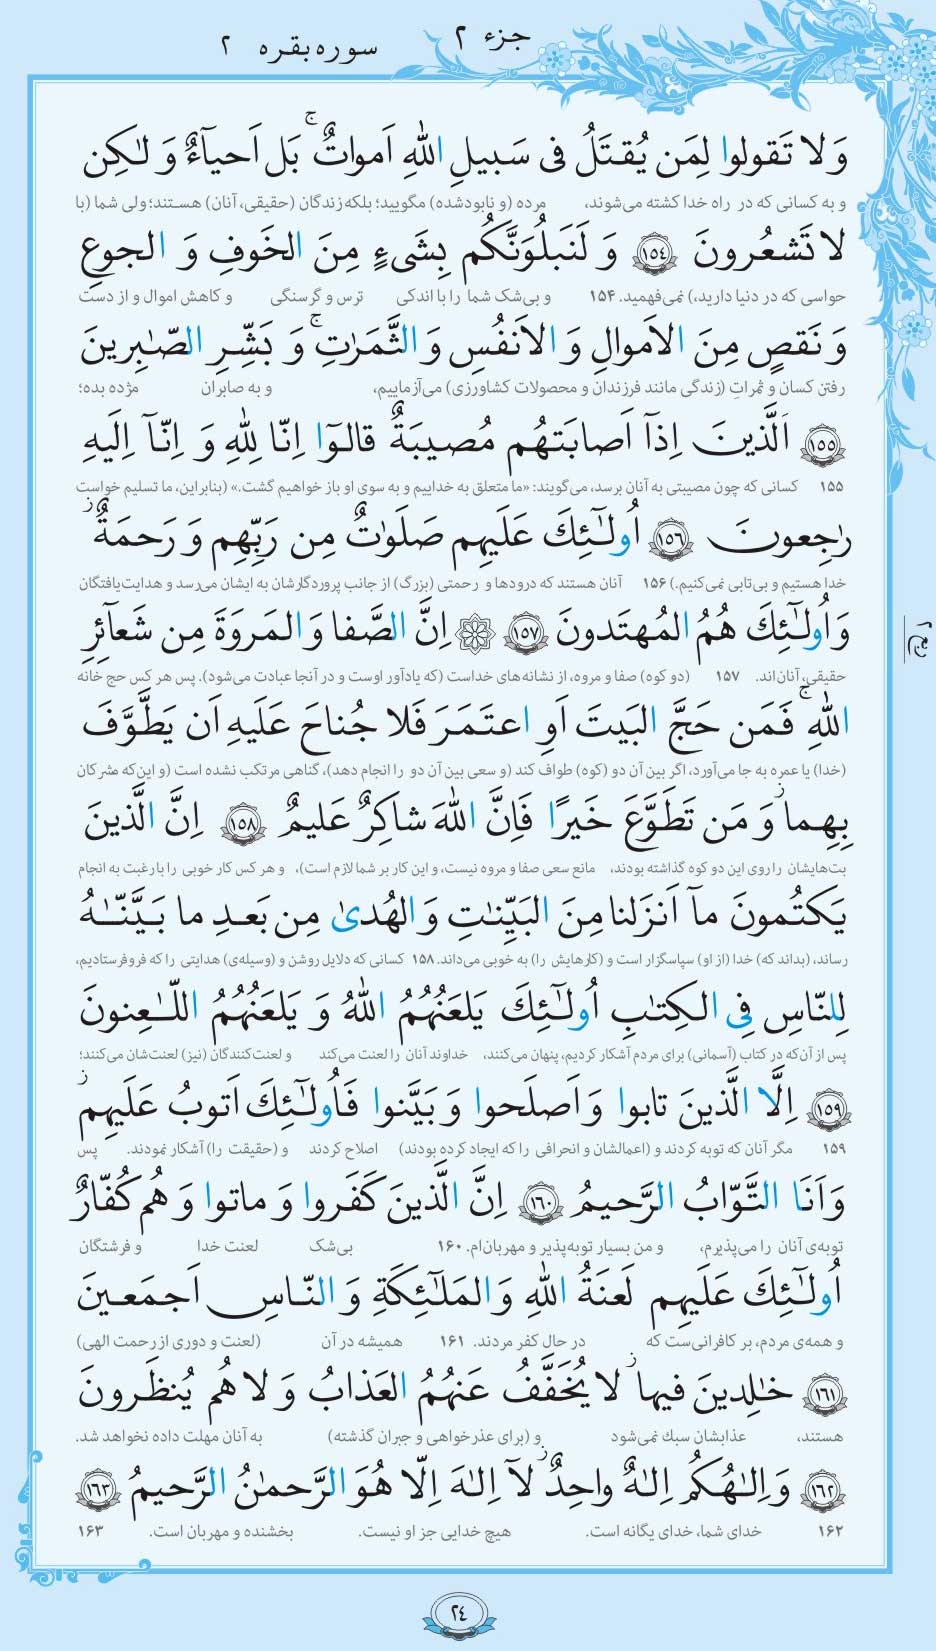 جزء ۲
سوره بقره ۲
وَلا تَقولوا لِمَن يُقتَلُ فى سَبيلِ اللّٰهِ اَمواتٌ ۚ بَل اَحيآءٌ وَ لٰكِن
و به کسانی که در راه خدا کشته می‌شوند، مرده (و نابودشده) مگویید؛ بلکه زندگان (حقیقی، آنان) هستند؛ ولی شما (با
لا تَشعُرونَ ﴿١٥٤﴾ وَ لَنَبلُوَنَّكُم بِشَىءٍ مِنَ الخَوفِ وَ الجوعِ
حواسی که در دنیا دارید،) نمی‌فهمید. ۱۵۴ و بی‌شک شما را با اندکی ترس و گرسنگی و کاهش اموال و از دست
وَ نَقصٍ مِنَ الاَموالِ وَ الاَنفُسِ وَ الثَّمَرٰتِ ۚ وَ بَشِّرِ الصّٰبِرينَ
رفتن کسان و ثمراتِ (زندگی مانند فرزندان و محصولات کشاورزی) می‌آزماییم، و به صابران مژده بده؛
﴿١٥٥﴾ اَلَّذينَ اِذآ اَصابَتهُم مُصيبَةٌ قالوٓا اِنّا لِلّٰهِ وَ اِنّآ اِلَيهِ
۱۵۵ کسانی که چون مصیبتی به آنان برسد، می‌گویند: «ما متعلق به خداییم و به سوی او باز خواهیم گشت.» (بنابراین، ما تسلیم خواست
رٰجِعونَ ﴿١٥٦﴾ اُولٰٓئِكَ عَلَيهِم صَلَوٰتٌ مِن رَبِّهِم وَ رَحمَةٌ ز
خدا هستیم و بی‌تابی نمی‌کنیم.) ۱۵۶ آنان هستند که درودها و رحمتی (بزرگ) از جانب پروردگارشان به ایشان می‌رسد و هدایت‌یافتگان
وَ اُولٰٓئِكَ هُمُ المُهتَدونَ ﴿١٥٧﴾ ۞ اِنَّ الصَّفا وَ المَروَةَ مِن شَعآئِرِ
ربع ۲
حقیقی، آنان‌اند. ۱۵۷ (دو کوه) صفا و مروه، از نشانه‌های خداست (که یادآور اوست و در آنجا عبادت می‌شود). پس هر کس حج خانه
اللّٰهِ ۚ فَمَن حَجَّ البَيتَ اَوِ اعتَمَرَ فَلا جُناحَ عَلَيهِ اَن يَطَّوَّفَ
(خدا) یا عمره به جا می‌آورد، اگر بین آن دو (کوه) طواف کند (و سعی بین آن دو را انجام دهد)، گناهی مرتکب نشده است (و این‌که مشرکان
بِهِما ز وَ مَن تَطَوَّعَ خَيرًا فَاِنَّ اللّٰهَ شاكِرٌ عَليمٌ ﴿١٥٨﴾ اِنَّ الَّذينَ
بت‌هایشان را روی این دو کوه گذاشته بودند، مانع سعی صفا و مروه نیست، و این کار بر شما لازم است)، و هر کس کار خوبی را با رغبت به انجام
يَكتُمونَ مآ اَنزَلنا مِنَ البَيِّنٰتِ وَ الهُدىٰ مِن بَعدِ ما بَيَّنّٰهُ
رساند، (بداند که) خدا (از او) سپاسگزار است و (کارهایش را) به خوبی می‌داند. ۱۵۸ کسانی که دلایل روشن و (وسیله‌ی) هدایتی را که فروفرستادیم،
لِلنّاسِ فِى الكِتٰبِ اُولٰٓئِكَ يَلعَنُهُمُ اللّٰهُ وَ يَلعَنُهُمُ اللّٰعِنونَ
پس از آن‌که در کتاب (آسمانی) برای مردم آشکار کردیم، پنهان می‌کنند، خداوند آنان را لعنت می‌کند و لعنت‌کنندگان (نیز) لعنت‌شان می‌کنند؛
﴿١٥٩﴾ اِلَّا الَّذينَ تابوا وَ اَصلَحوا وَ بَيَّنوا فَاُولٰٓئِكَ اَتوبُ عَلَيهِم ز
۱۵۹ مگر آنان که توبه کردند و (اعمالشان و انحرافی را که ایجاد کرده بودند) اصلاح کردند و (حقیقت را) آشکار نمودند. پس
وَ اَنَا التَّوّابُ الرَّحيمُ ﴿١٦٠﴾ اِنَّ الَّذينَ كَفَروا وَ ماتوا وَ هُم كُفّارٌ
توبه‌ی آنان را می‌پذیرم، و من بسیار توبه‌پذیر و مهربان‌ام. ۱۶۰ بی‌شک لعنت خدا و فرشتگان
اُولٰٓئِكَ عَلَيهِم لَعنَةُ اللّٰهِ وَ المَلٰٓئِكَةِ وَ النّاسِ اَجمَعينَ
و همه‌ی مردم، بر کافرانی‌ست که در حال کفر مردند. ۱۶۱ همیشه در آن (لعنت و دوری از رحمت الهی)
﴿١٦١﴾ خٰلِدينَ فيها ز لا يُخَفَّفُ عَنهُمُ العَذابُ وَ لا هُم يُنظَرونَ
هستند، عذابشان سبک نمی‌شود و (برای عذرخواهی و جبران گذشته) به آنان مهلت داده نخواهد شد.
﴿١٦٢﴾ وَ اِلٰهُكُم اِلٰهٌ واحِدٌ ز لآ اِلٰهَ اِلّا هُوَ الرَّحمٰنُ الرَّحيمُ ﴿١٦٣﴾
۱۶۲ خدای شما، خدای یگانه است. هیچ خدایی جز او نیست. بخشنده و مهربان است. ۱۶۳
٢٤